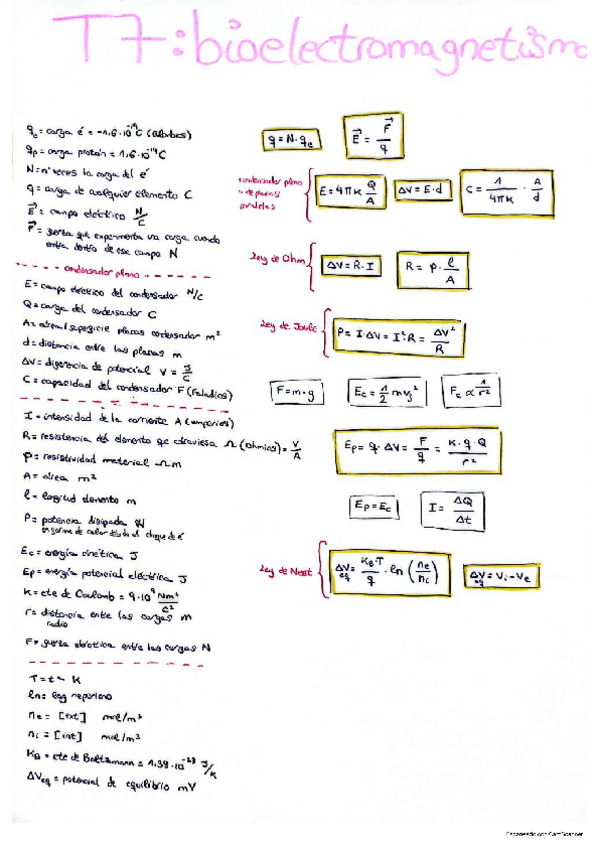 T7: bioelectromagnetismo
qe = carga é = -1,6·10⁻¹⁹ C (culombios)
qp = carga protón = 1,6·10⁻¹⁹ C
N = nº veces la carga del é
q = carga de cualquier elemento C
E⃗ = campo eléctrico N/C
F⃗ = fuerza que experimenta una carga cuando
entra dentro de ese campo N
condensador plano
E = campo eléctrico del condensador N/C
Q = carga del condensador C
A = área/superficie placas condensador m²
d = distancia entre las placas m
ΔV = diferencia de potencial V = J/C
C = capacidad del condensador F (Faladios)
I = intensidad de la corriente A (amperios)
R = resistencia del elemento que atraviesa Ω (ohmios) = V/A
ρ = resistividad material Ω m
A = área m²
l = longitud elemento m
P = potencia disipada W
en forma de calor debido al choque de é
Ec = energía cinética J
Ep = energía potencial eléctrica J
K = cte de Coulomb = 9·10⁹ Nm²/C²
r = distancia entre las cargas m
radio
F = fuerza eléctrica entre las cargas N
T = tª K
ln = log neperiano
ne = [ext] mol/m³
ni = [int] mol/m³
KB = cte de Boltzmann = 1,38·10⁻²³ J/K
ΔVeq = potencial de equilibrio mV
q = N·qe
E⃗ = F⃗/q
condensador plano
de placas
paralelas
E = 4πK Q/A
ΔV = E·d
C = 1/4πK · A/d
Ley de Ohm
ΔV = R·I
R = ρ · l/A
Ley de Joule
P = I·ΔV = I²·R = ΔV²/R
F = m·g
Ec = 1/2 mv²
Fc ∝ 1/r²
Ep = q·ΔV = F/q = K·q·Q/r²
Ep = Ec
I = ΔQ/Δt
Ley de Nest
ΔVeq = KB·T/q · ln (ne/ni)
ΔVeq = Vi - Ve
Escaneado con CamScanner